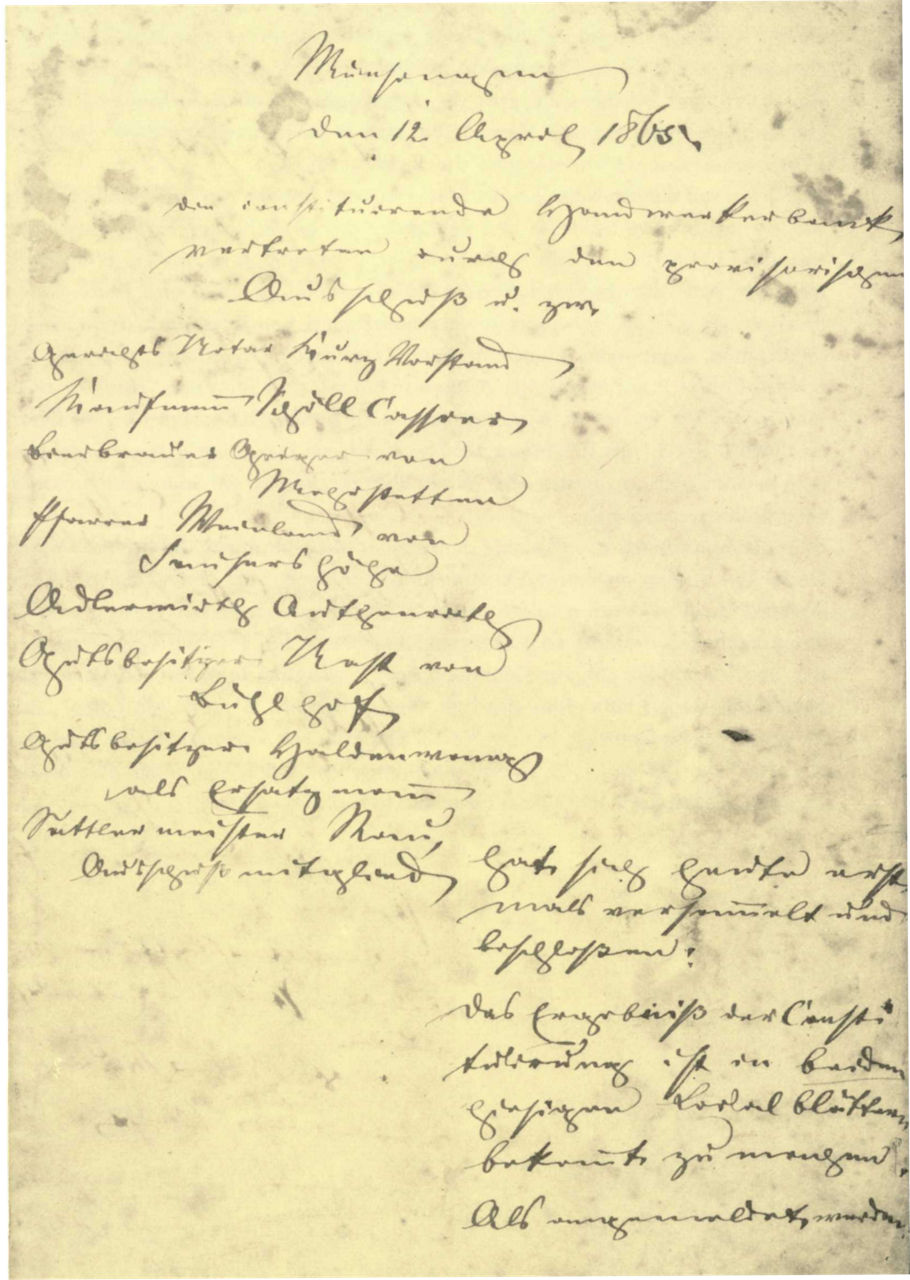 Münsingen
den 12. April 1865.
die constituirende Handwerkerbank
vertreten durch den provisorischen
Ausschuß u. zw.
Gerichts Notar Kurz Vorstand
Kaufmann Schöll Cassier
Bierbrauer Geiger von
Mehrstetten
Pfarrer Weinland von
Adlerwirth Authenrieth
Gutsbesitzer Nast von
Bühlhof
Gutsbesitzer Haldenwang
als Ersatzmann
Sattlermeister Rau,
Ausschußmitglied
hat sich heute erst
mals versammelt und
beschloßen:
das Ergebniß der Consti
tuierung ist in beiden
hiesigen Lokalblättern
bekannt zu machen.
Als angemeldet werden